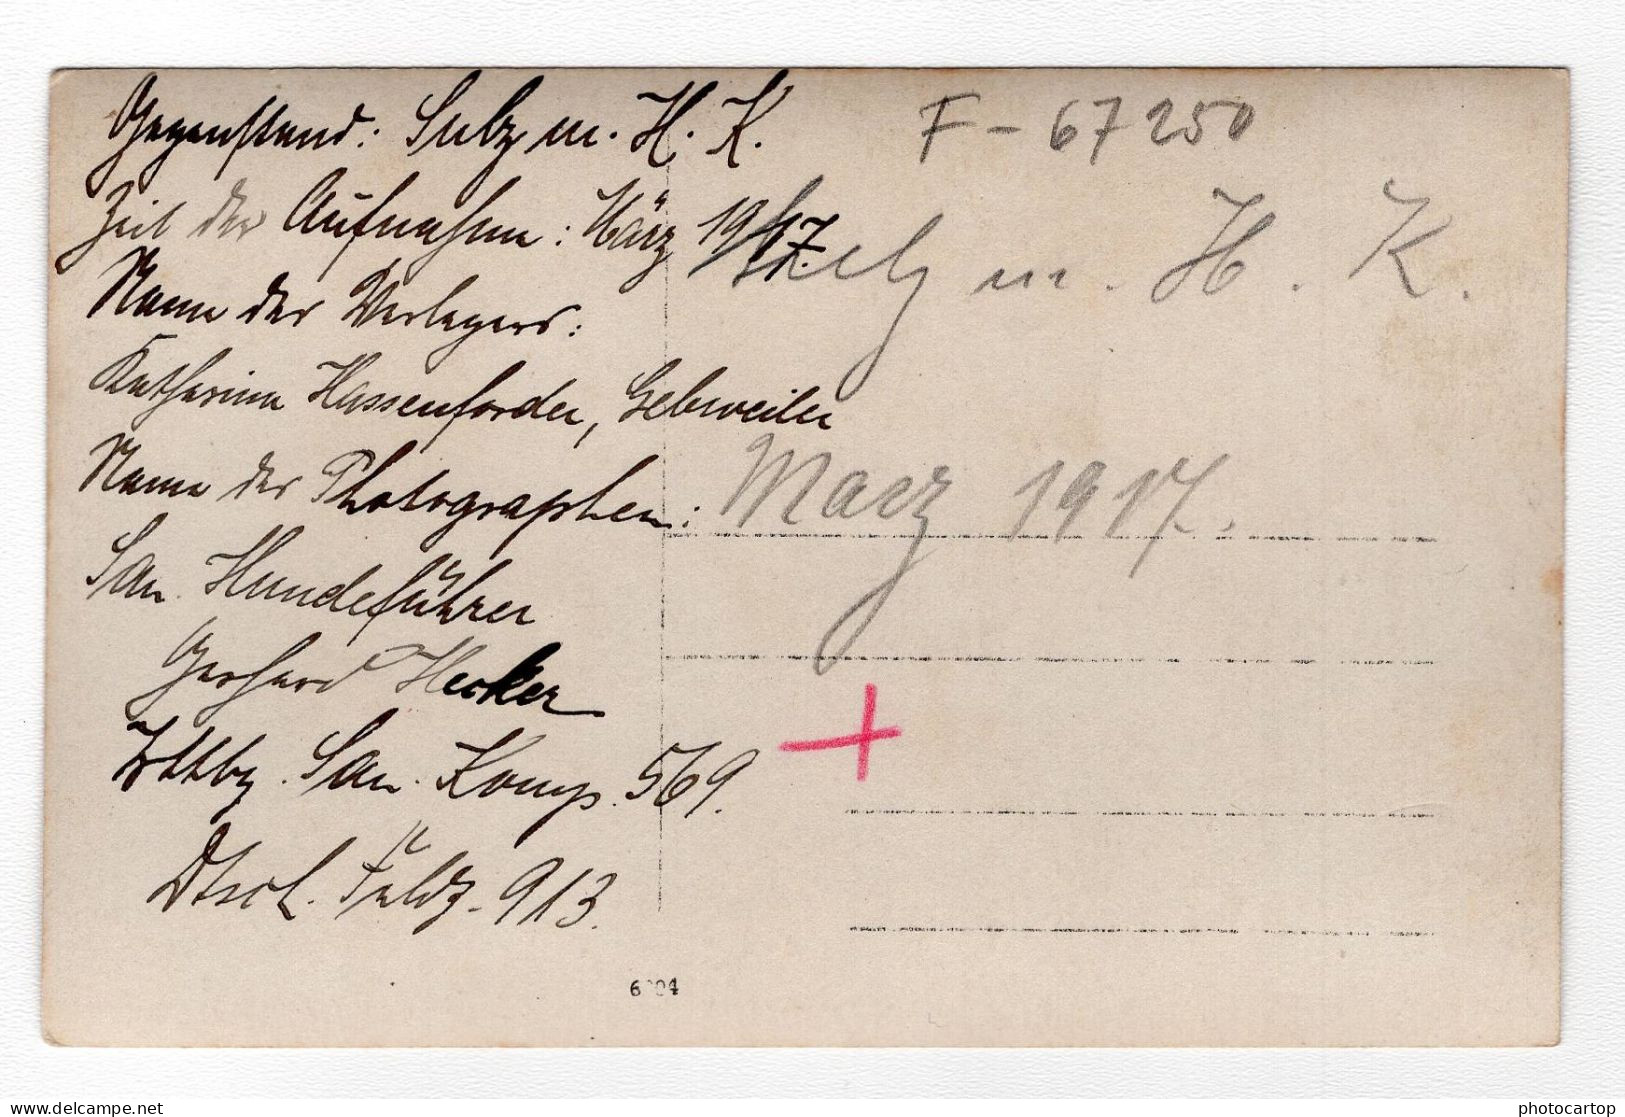 Gegenstand: Sulz m. H. K.
Zeit der Aufnahme: März 1917.
Name des Verlegers:
Katharina Hassenforder, Gebweiler
Name des Photographen:
San. Hundeführer
Gerhard Hecker
San. Komp. 569.
Dtsch. Feldp. 913.
F - 67250
Sulz m. H. K.
Maerz 1917.
photocartop
delcampe.net